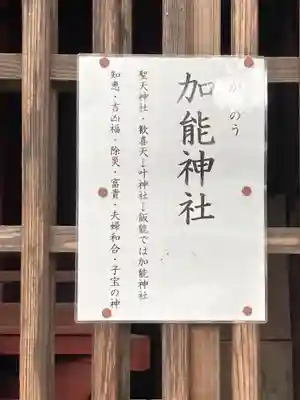 か のう
加能神社
聖天神社・歓喜天→叶神社→飯能では加能神社
知恵・吉凶福・除災・富貴・夫婦和合・子宝の神